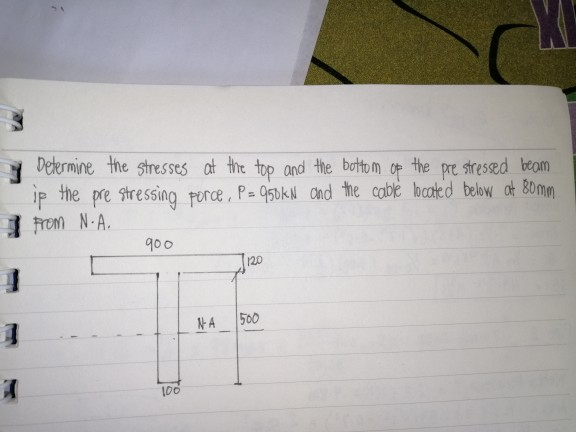 Determine the stresses at the top and the bottom of the pre stressed beam
if the pre stressing force, P = 950kN and the cable located below at 80mm
from N.A.
900
120
N.A
500
100